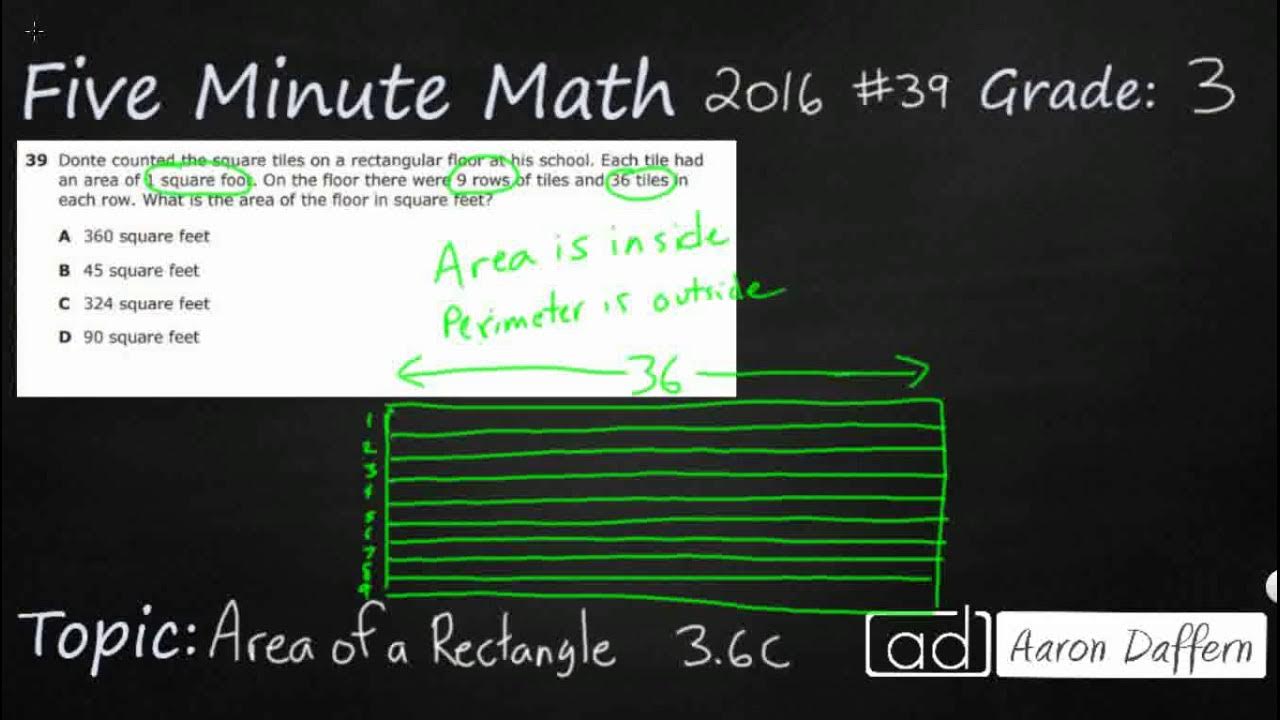 Five Minute Math 2016 #39 Grade: 3
39 Donte counted the square tiles on a rectangular floor at his school. Each tile had
an area of 1 square foot. On the floor there were 9 rows of tiles and 36 tiles in
each row. What is the area of the floor in square feet?
A 360 square feet
B 45 square feet
C 324 square feet
D 90 square feet
Area is inside
Perimeter is outside
36
1
2
3
4
5
6
7
8
9
Topic: Area of a Rectangle 3.6C
ad Aaron Daffern